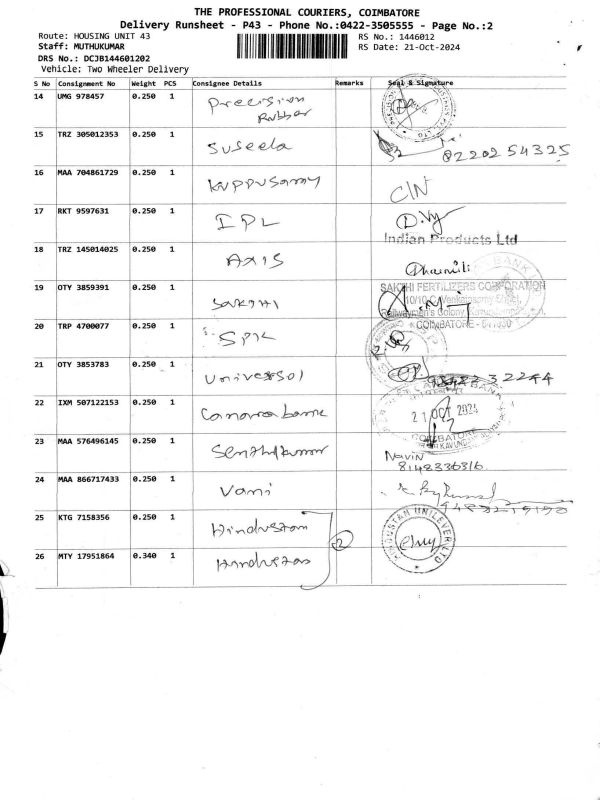 THE PROFESSIONAL COURIERS, COIMBATORE
Delivery Runsheet - P43 - Phone No.:0422-3505555 - Page No.:2
Route: HOUSING UNIT 43 RS No.: 1446012
Staff: MUTHUKUMAR RS Date: 21-Oct-2024
DRS No.: DCJB144601202
Vehicle: Two Wheeler Delivery
S No Consignment No Weight PCS Consignee Details Remarks Seal & Signature
14 UMG 978457 0.250 1 Precision
Rubber
15 TRZ 305012353 0.250 1 Suseela
02202 54325
16 MAA 704861729 0.250 1 Kuppusamy
CIN
17 RKT 9597631 0.250 1 IPL
Indian Products Ltd
18 TRZ 145014025 0.250 1 AXIS
19 OTY 3859391 0.250 1 Sakthi
SAKTHI FERTILIZERS CORPORATION
COIMBATORE
20 TRP 4700077 0.250 1 SPK
21 OTY 3853783 0.250 1 Universal
22 IXM 507122153 0.250 1 Canara bank
21 OCT 2024
COIMBATORE
23 MAA 576496145 0.250 1 Senthilkumar
Navin
8148336316
24 MAA 866717433 0.250 1 Vani
25 KTG 7158356 0.250 1 Hindustan
HINDUSTAN UNILEVER LTD
2
26 MTY 17951864 0.340 1 Hindustan